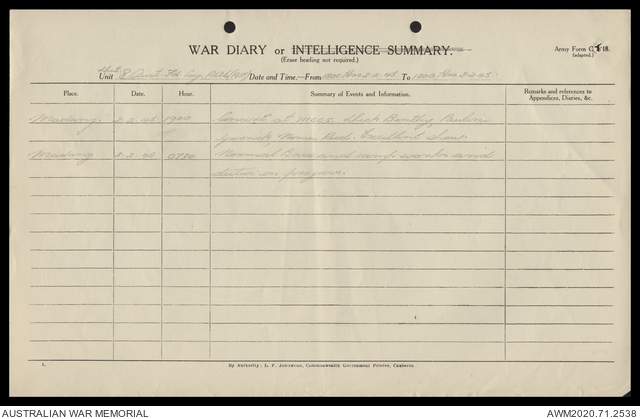 WAR DIARY or INTELLIGENCE SUMMARY.
(Erase heading not required.)
Army Form C. 118.
(adapted.)
Unit 8 Aust. Fd Coy. Date and Time.—From 1800 Hrs 2-2-45 To 1800 Hrs 3-2-45.
Place. Date. Hour. Summary of Events and Information. Remarks and references to
Appendices, Diaries, &c.
Madang. 2-2-45 1900 Concert at Dick Bentley Excellent show.
Madang. 3-2-45 0730 Normal Base and camp works and
duties in progress.
L.
By Authority: L. F. Johnston, Commonwealth Government Printer, Canberra.
AUSTRALIAN WAR MEMORIAL
AWM2020.71.2538